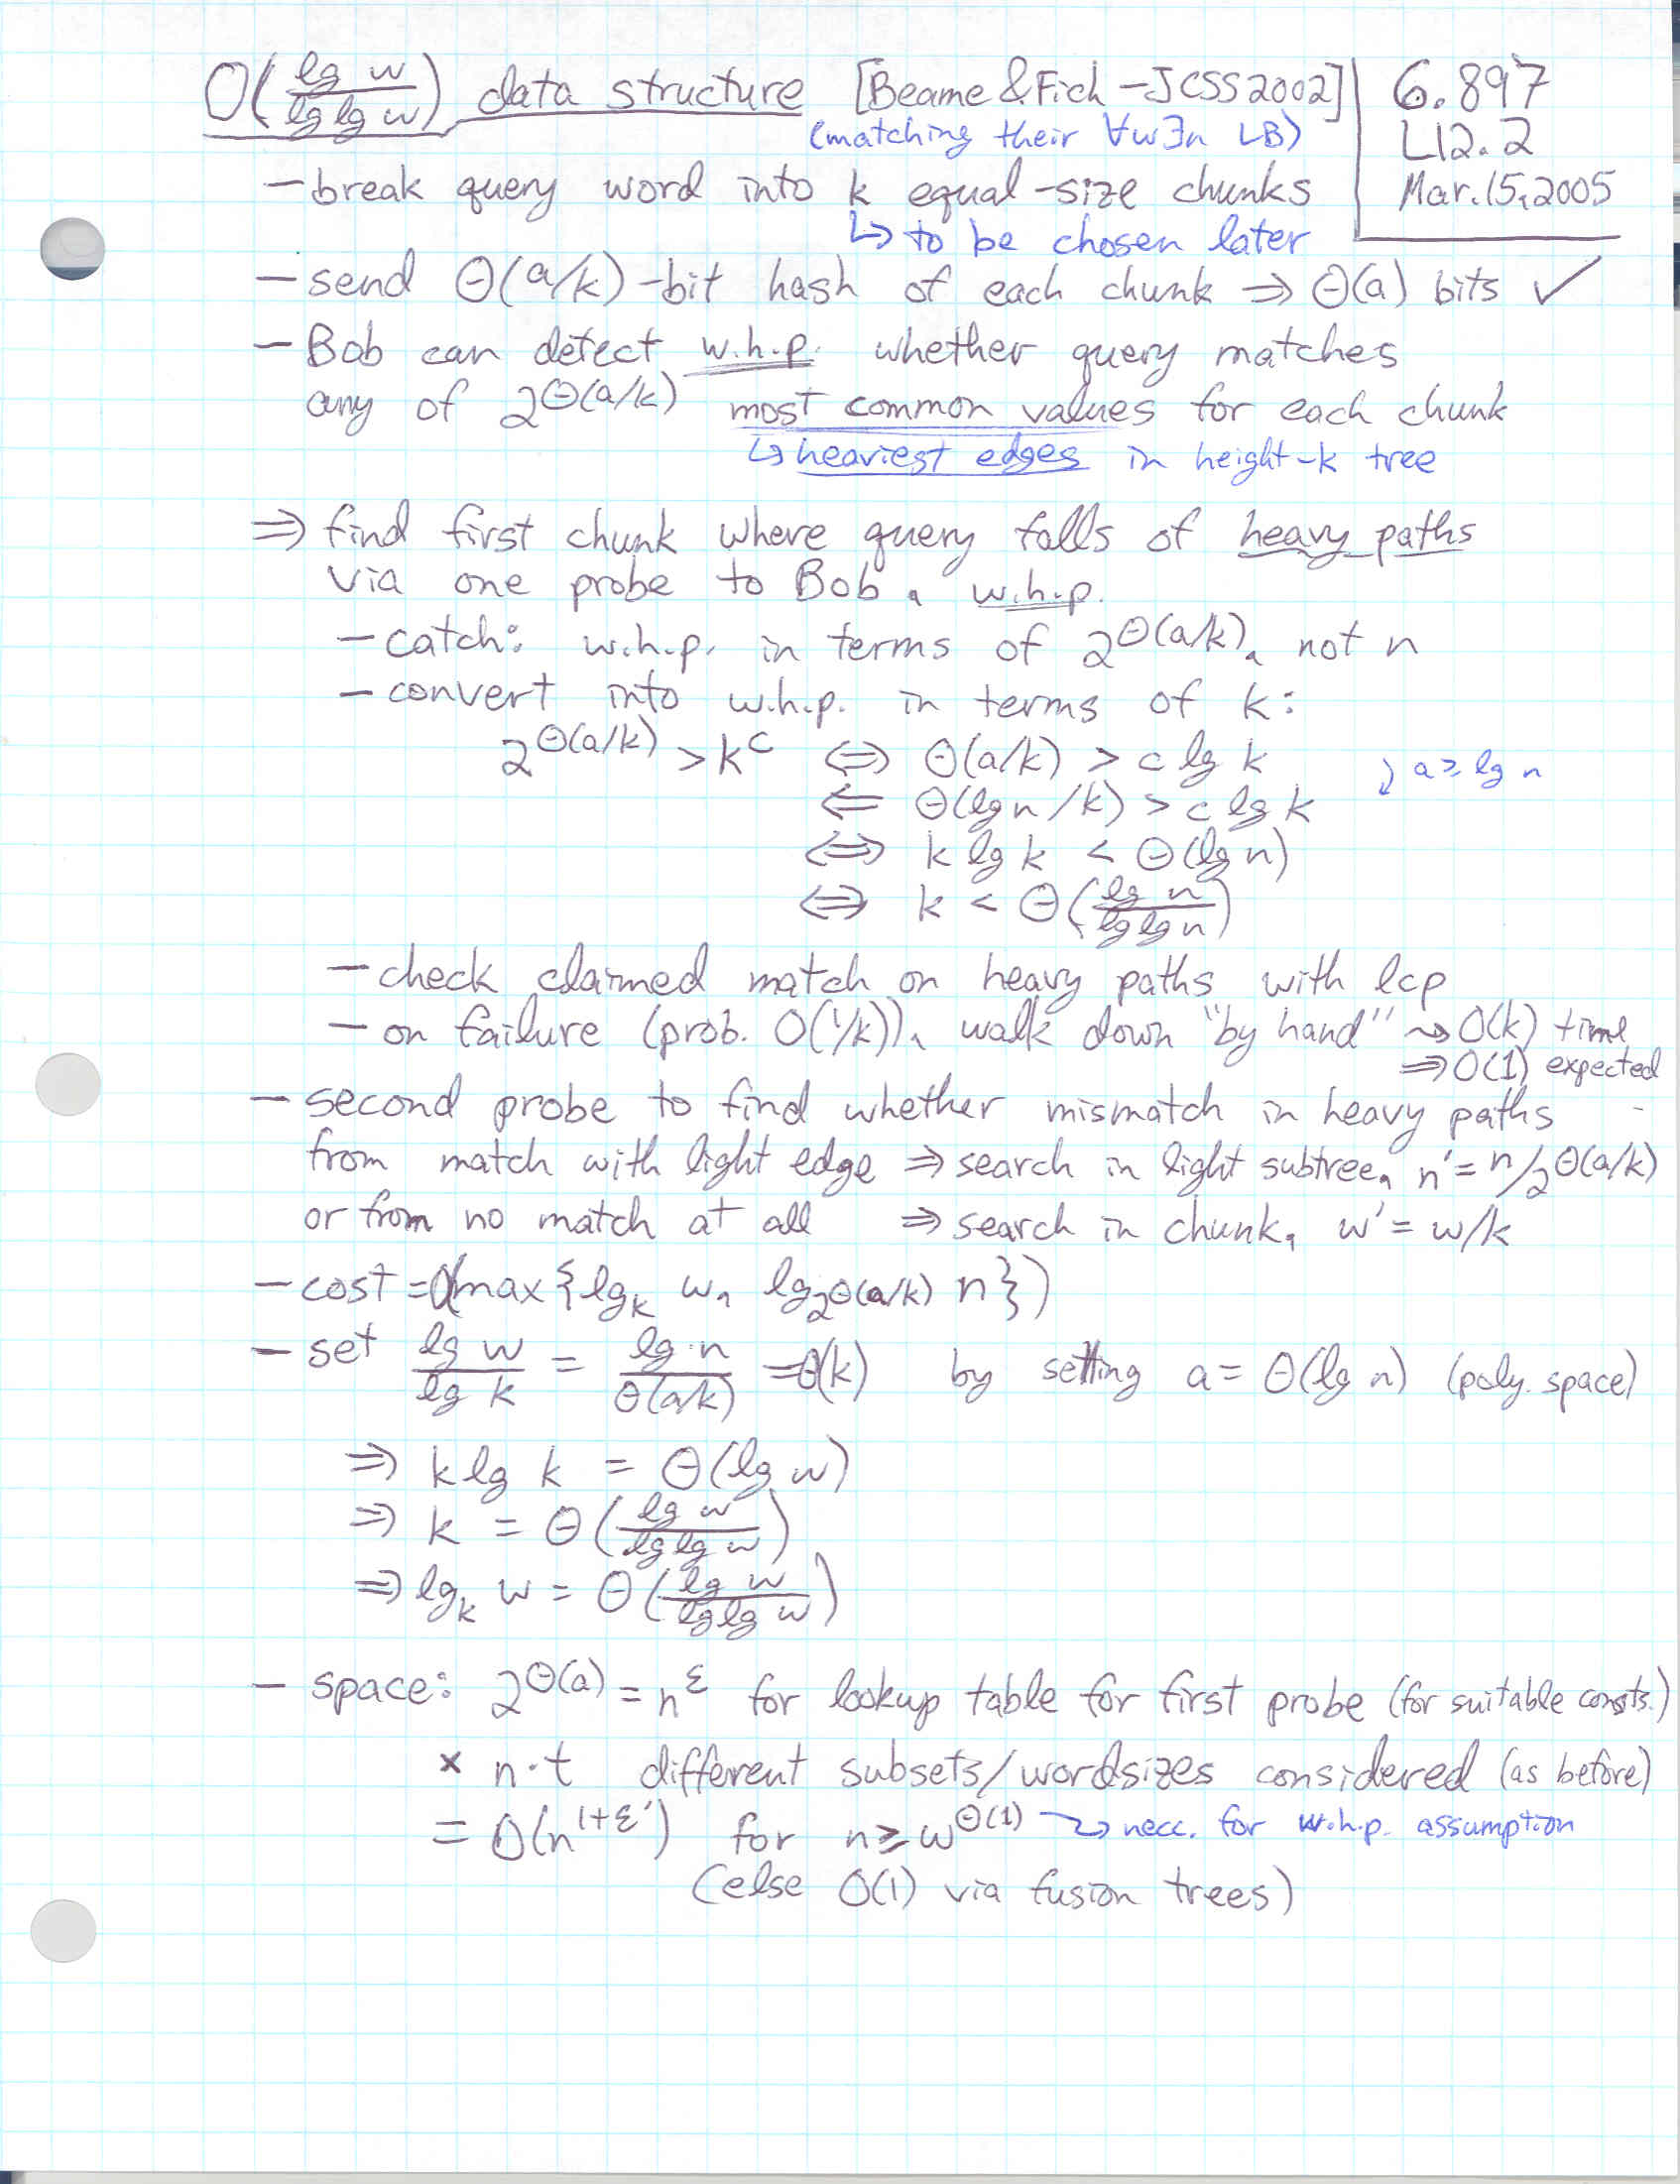 O(lg w / lg lg w) data structure [Beame & Fich - JCSS 2002]
(matching their ∀w∃n LB)
6.897
L12.2
Mar. 15, 2005
- break query word into k equal-size chunks
↳ to be chosen later
- send Θ(a/k)-bit hash of each chunk ⇒ Θ(a) bits ✓
- Bob can detect w.h.p. whether query matches
any of 2^Θ(a/k) most common values for each chunk
↳ heaviest edges in height-k tree
⇒ find first chunk where query falls of heavy paths
via one probe to Bob, w.h.p.
- catch: w.h.p. in terms of 2^Θ(a/k), not n
- convert into w.h.p. in terms of k:
2^Θ(a/k) > k^c ⇔ Θ(a/k) > c lg k
⤵ a ≥ lg n
⇐ Θ(lg n / k) > c lg k
⇔ k lg k < Θ(lg n)
⇔ k < Θ(lg n / lg lg n)
- check claimed match on heavy paths with lcp
- on failure (prob. O(1/k)), walk down "by hand" ⇝ O(k) time
⇒ O(1) expected
- second probe to find whether mismatch in heavy paths
from match with light edge ⇒ search in light subtree, n' = n/2^Θ(a/k)
or from no match at all ⇒ search in chunk, w' = w/k
- cost = O(max{lg_k w, lg_2^Θ(a/k) n})
- set lg w / lg k = lg n / Θ(a/k) = Θ(k) by setting a = Θ(lg n) (poly. space)
⇒ k lg k = Θ(lg w)
⇒ k = Θ(lg w / lg lg w)
⇒ lg_k w = Θ(lg w / lg lg w)
- space: 2^Θ(a) = n^ε for lookup table for first probe (for suitable consts.)
× n·t different subsets/wordsizes considered (as before)
= O(n^(1+ε')) for n ≥ w^Θ(1) ↝ necc. for w.h.p. assumption
(else O(1) via fusion trees)